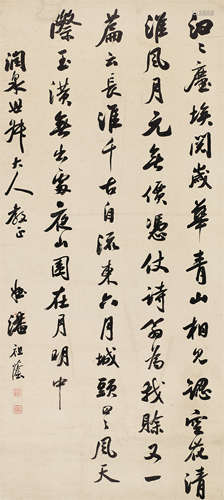 汩〻塵埃閱歲華青山相見認空花清
淮風月元無價憑仗詩翁為我賒又一
篇云長淮千古自流東六月城頭風天
際玉潢無出處夜山圍在月明中
潤泉世大人教正
潘祖蔭